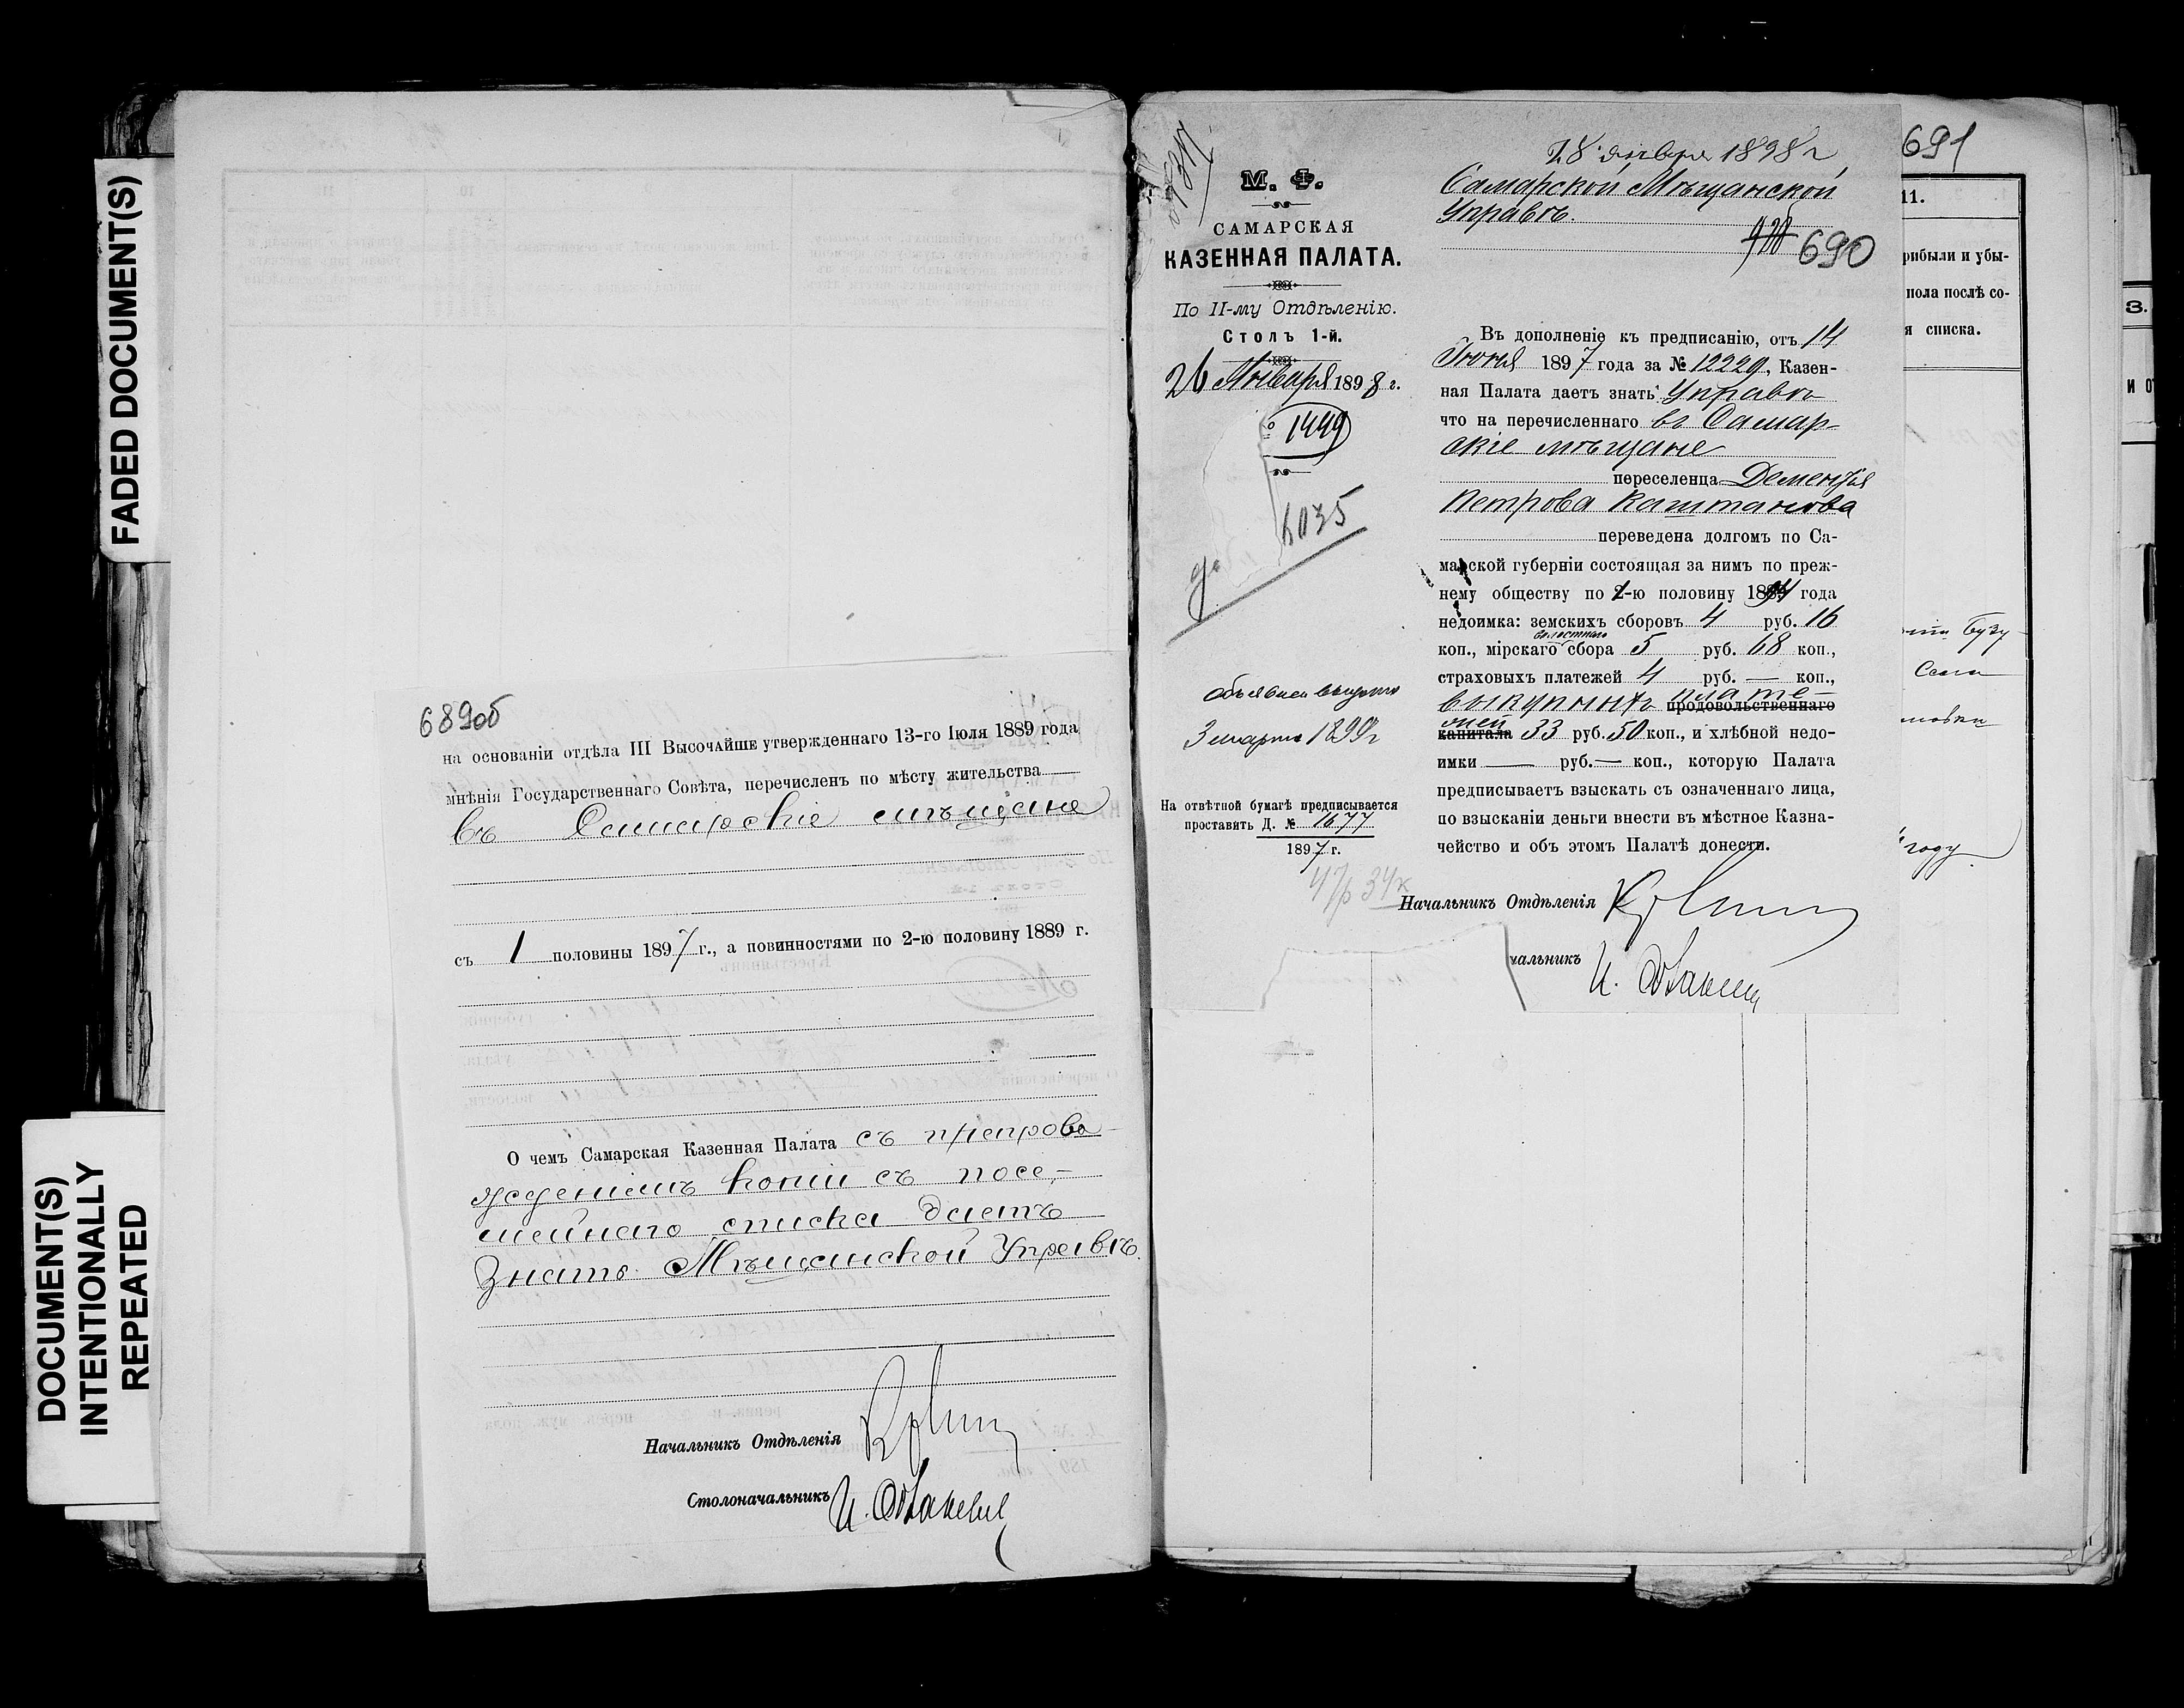 FADED DOCUMENT(S)
DOCUMENT(S)
INTENTIONALLY
REPEATED
689об
на основаніи отдѣла III Высочайше утвержденнаго 13-го Іюля 1889 года
мнѣнія Государственнаго Совѣта, перечисленъ по мѣсту жительства
въ Самарскіе мѣщане
съ 1 половины 1897 г., а повинностями по 2-ю половину 1889 г.
О чемъ Самарская Казенная Палата съ препрово-
жденіемъ копіи съ посе-
мейнаго списка даетъ
знать Мѣщанской Управѣ.
Начальникъ Отдѣленія
Столоначальникъ
М. Ф.
САМАРСКАЯ
КАЗЕННАЯ ПАЛАТА.
По II-му Отдѣленію.
Столъ 1-й.
26 Января 1898 г.
1449
6035
3 марта 1899 г
На отвѣтной бумагѣ предписывается
проставить Д. № 1677
1897 г.
47р 34к
28 января 1898 г
Самарской Мѣщанской
Управѣ.
690
Въ дополненіе къ предписанію, отъ 14
Іюня 1897 года за № 12229, Казен-
ная Палата даетъ знать Управѣ
что на перечисленнаго въ Самар-
скіе мѣщане
переселенца Дементія
Петрова Каштанова
переведена долгомъ по Са-
марской губерніи состоящая за нимъ по преж-
нему обществу по половину года
недоимка: земскихъ сборовъ 4 руб. 16
волостного
коп., мірскаго сбора 5 руб. 68 коп.,
страховыхъ платежей 4 руб. — коп.,
выкупныхъ плате- продовольственнаго
жей капитала 33 руб. 50 коп., и хлѣбной недо-
имки — руб. — коп., которую Палата
предписываетъ взыскать съ означеннаго лица,
по взысканіи деньги внести въ мѣстное Казна-
чейство и объ этомъ Палатѣ донести.
Начальникъ Отдѣленія
чальникъ
691
11.
рибыли и убы-
пола послѣ со-
я списка.
Бузу-
Сама
году
3.
и от